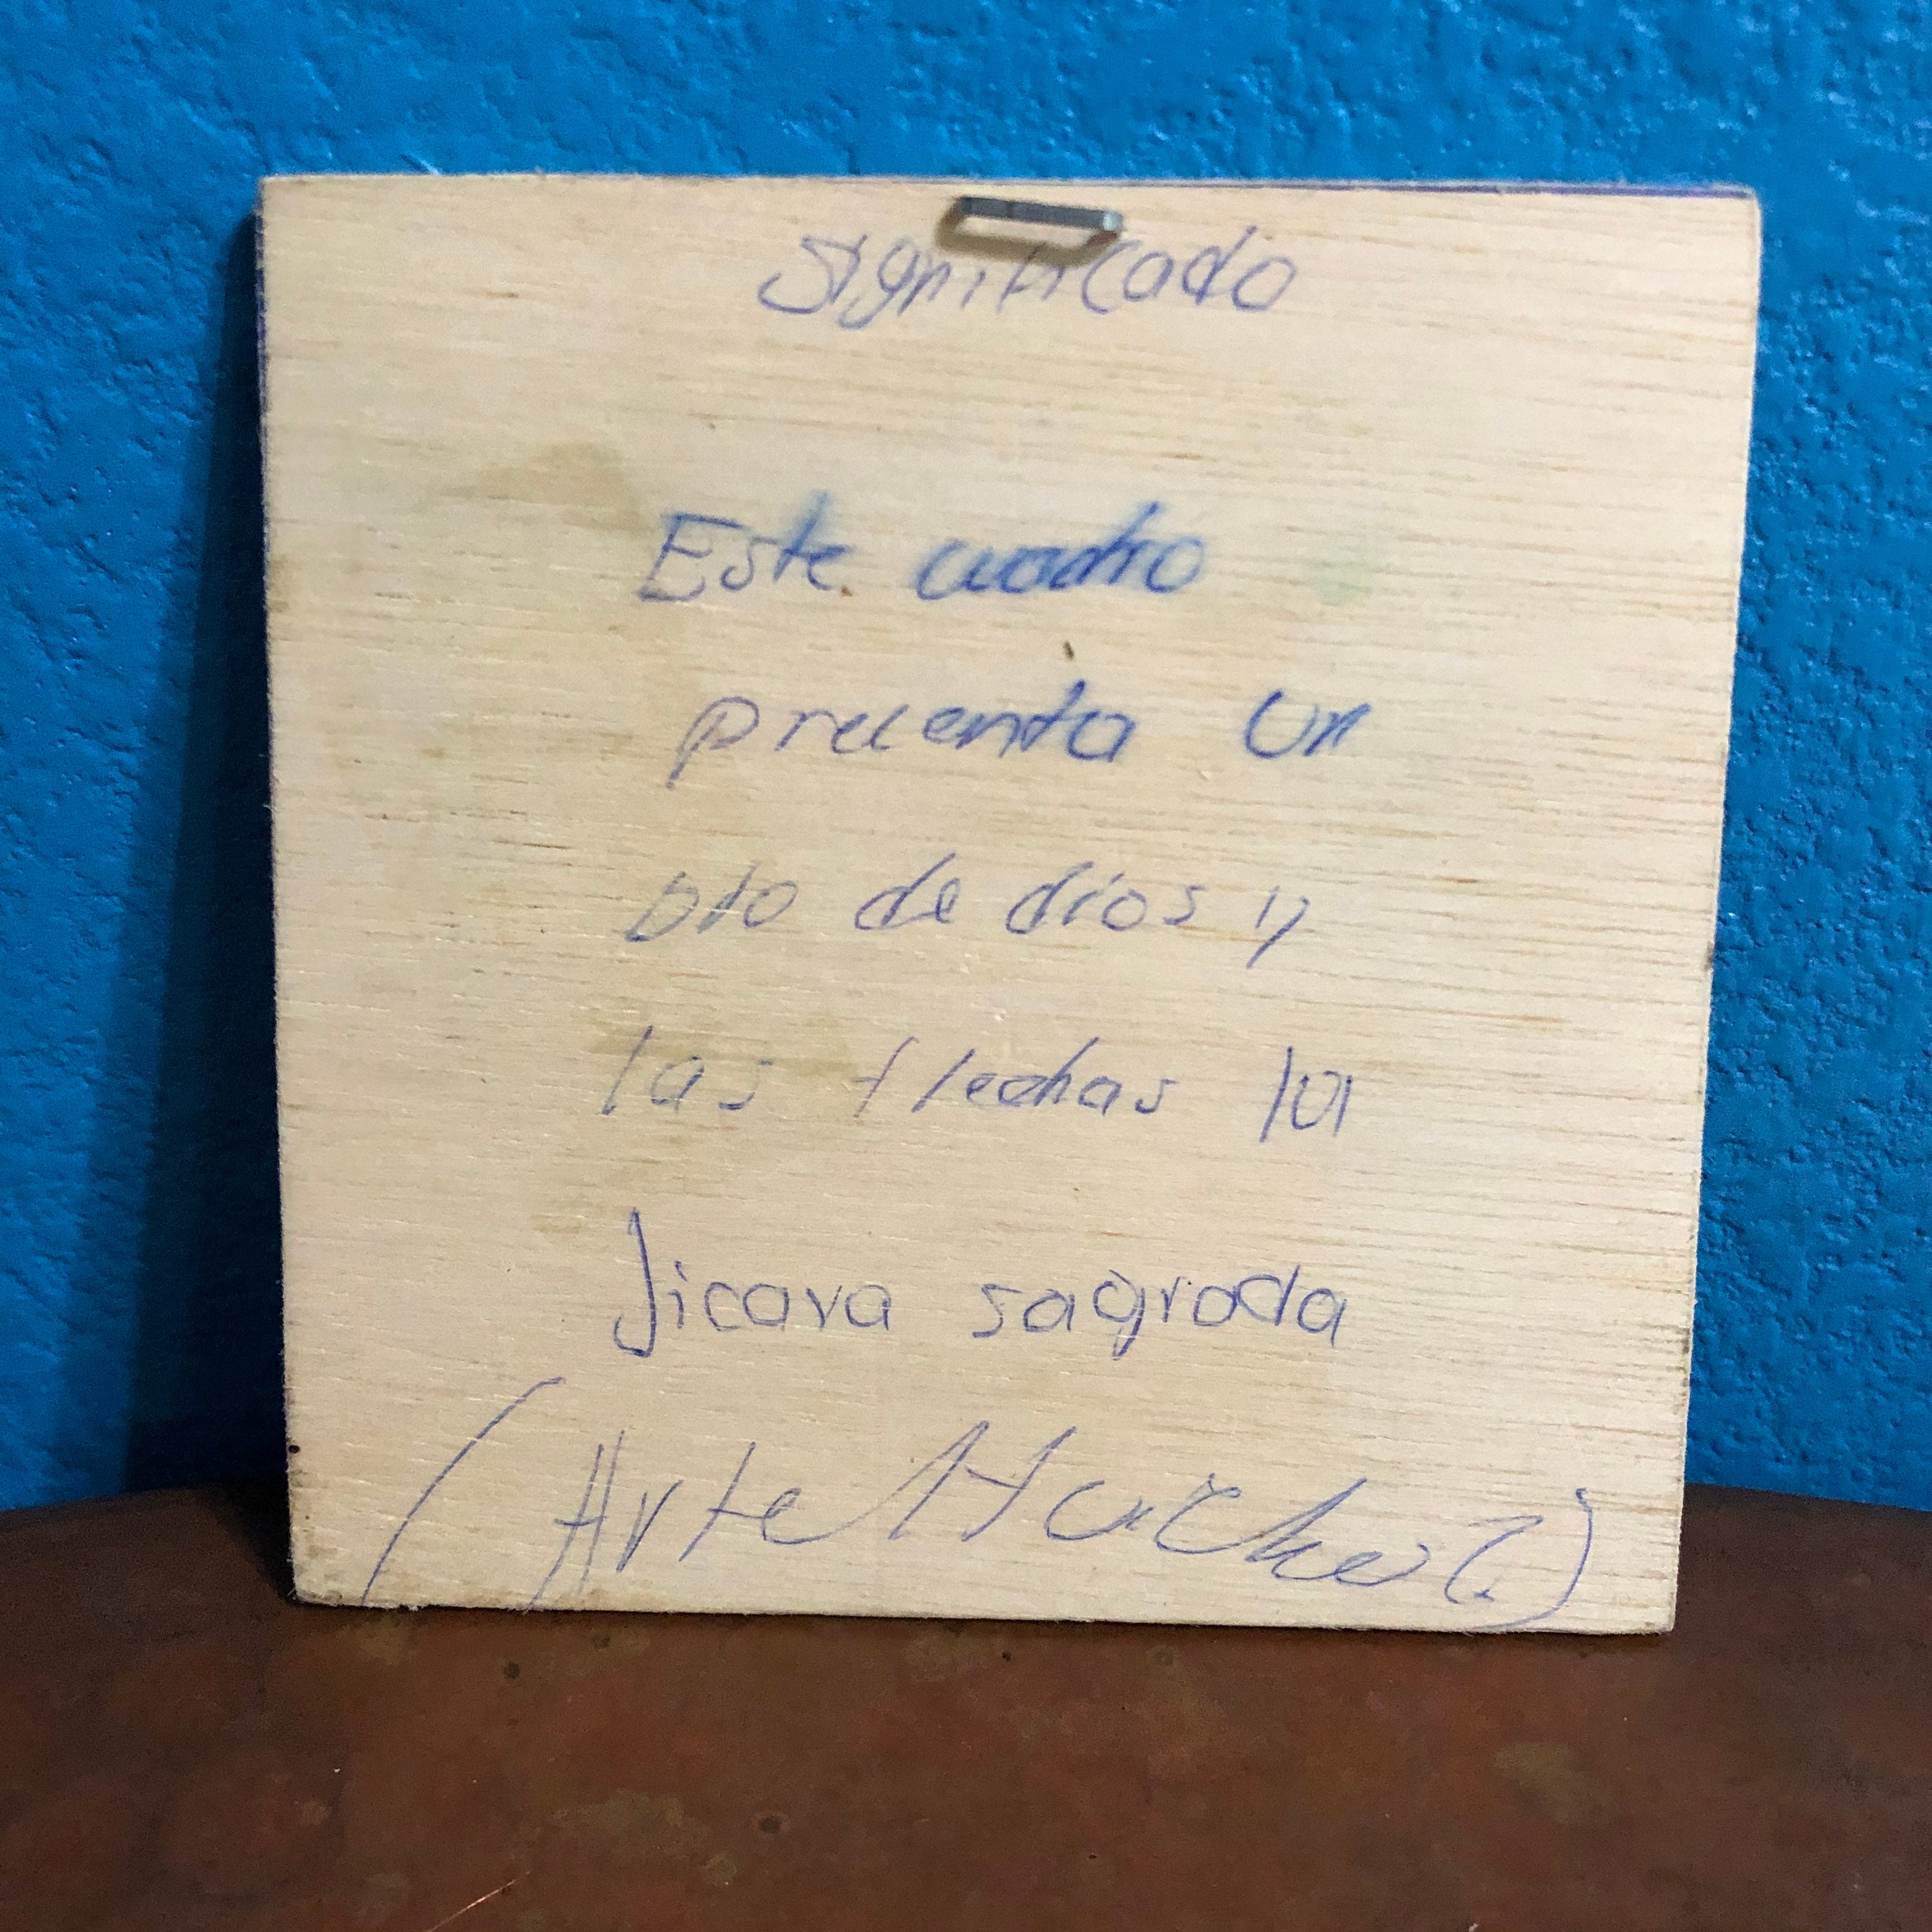 significado
Este cuadro
precenta un
ojo de dios y
las flechas la
Jicara sagrada
(Arte Huichol)